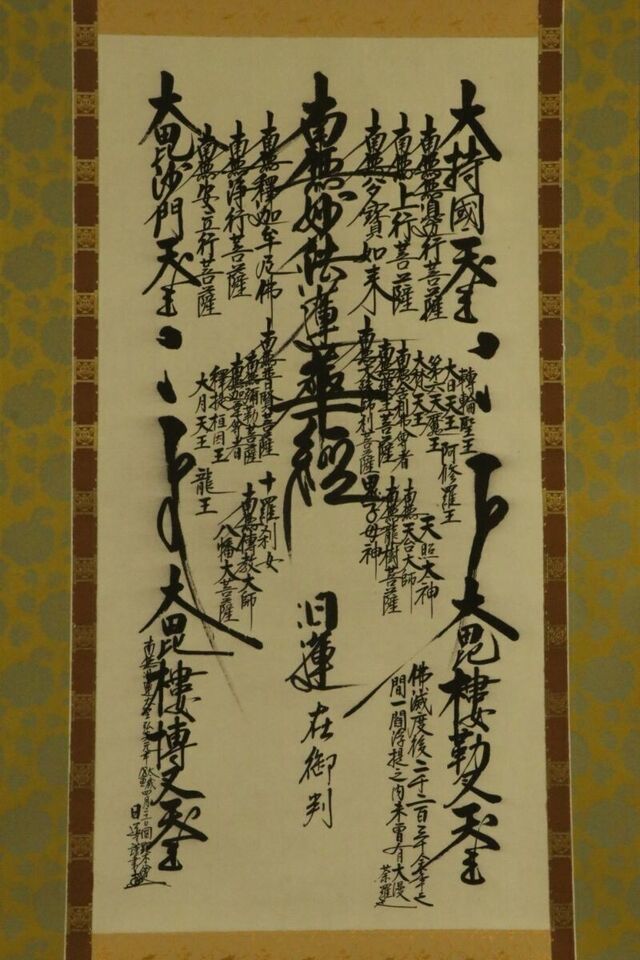 大持國天王
南無無邊行菩薩
南無上行菩薩
南無多寶如來
南無妙法蓮華經
南無釋迦牟尼佛
南無淨行菩薩
南無安立行菩薩
大毘沙門天王
轉輪聖王
大日天王
阿修羅王
第六天魔王
大梵天王
南無舍利弗尊者
南無藥王菩薩
南無文殊師利菩薩
南無普賢菩薩
南無彌勒菩薩
南無迦葉尊者
釋提桓因王
大月天王
龍王
天照大神
南無天台大師
南無龍樹菩薩
鬼子母神
十羅刹女
南無傳教大師
八幡大菩薩
大毘樓勒叉天王
佛滅度後二千二百三十余年之
間一閻浮提之内未曾有大漫
荼羅也
日蓮在御判
大毘樓博叉天王